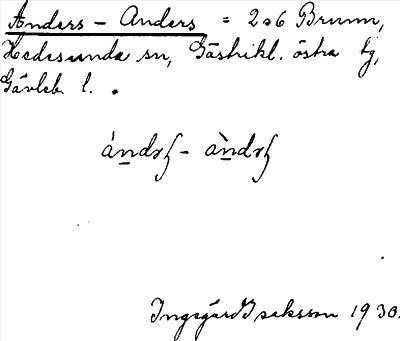 Anders - Anders = 206 Brunn,
Hedesunda sn, Gästrikl. östra tg,
Gävleb. l.
Ingegärd Isaksson 1930.